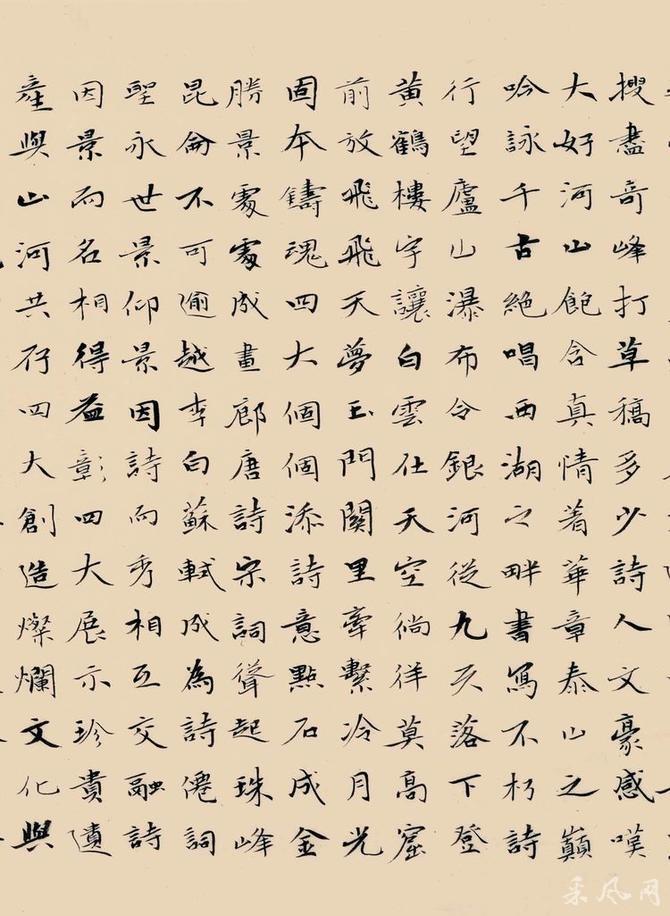 搜盡奇峰打草稿多少詩人文豪感嘆
大好河山飽含真情着華章泰山之巔
吟詠千古絕唱西湖之畔書寫不朽詩
行望廬山瀑布令銀河從九天落下登
黃鶴樓宇讓白雲在天空徜徉莫高窟
前放飛飛天夢玉門關里牽繫冷月光
固本鑄魂四大個個添詩意點石成金
勝景處處成畫廊唐詩宋詞聳起珠峰
昆侖不可逾越李白蘇軾成為詩僊詞
聖永世景仰景因詩而秀相互交融詩
因景而名相得益彰四大展示珍貴遺
產與山河共存四大創造燦爛文化與
采风网